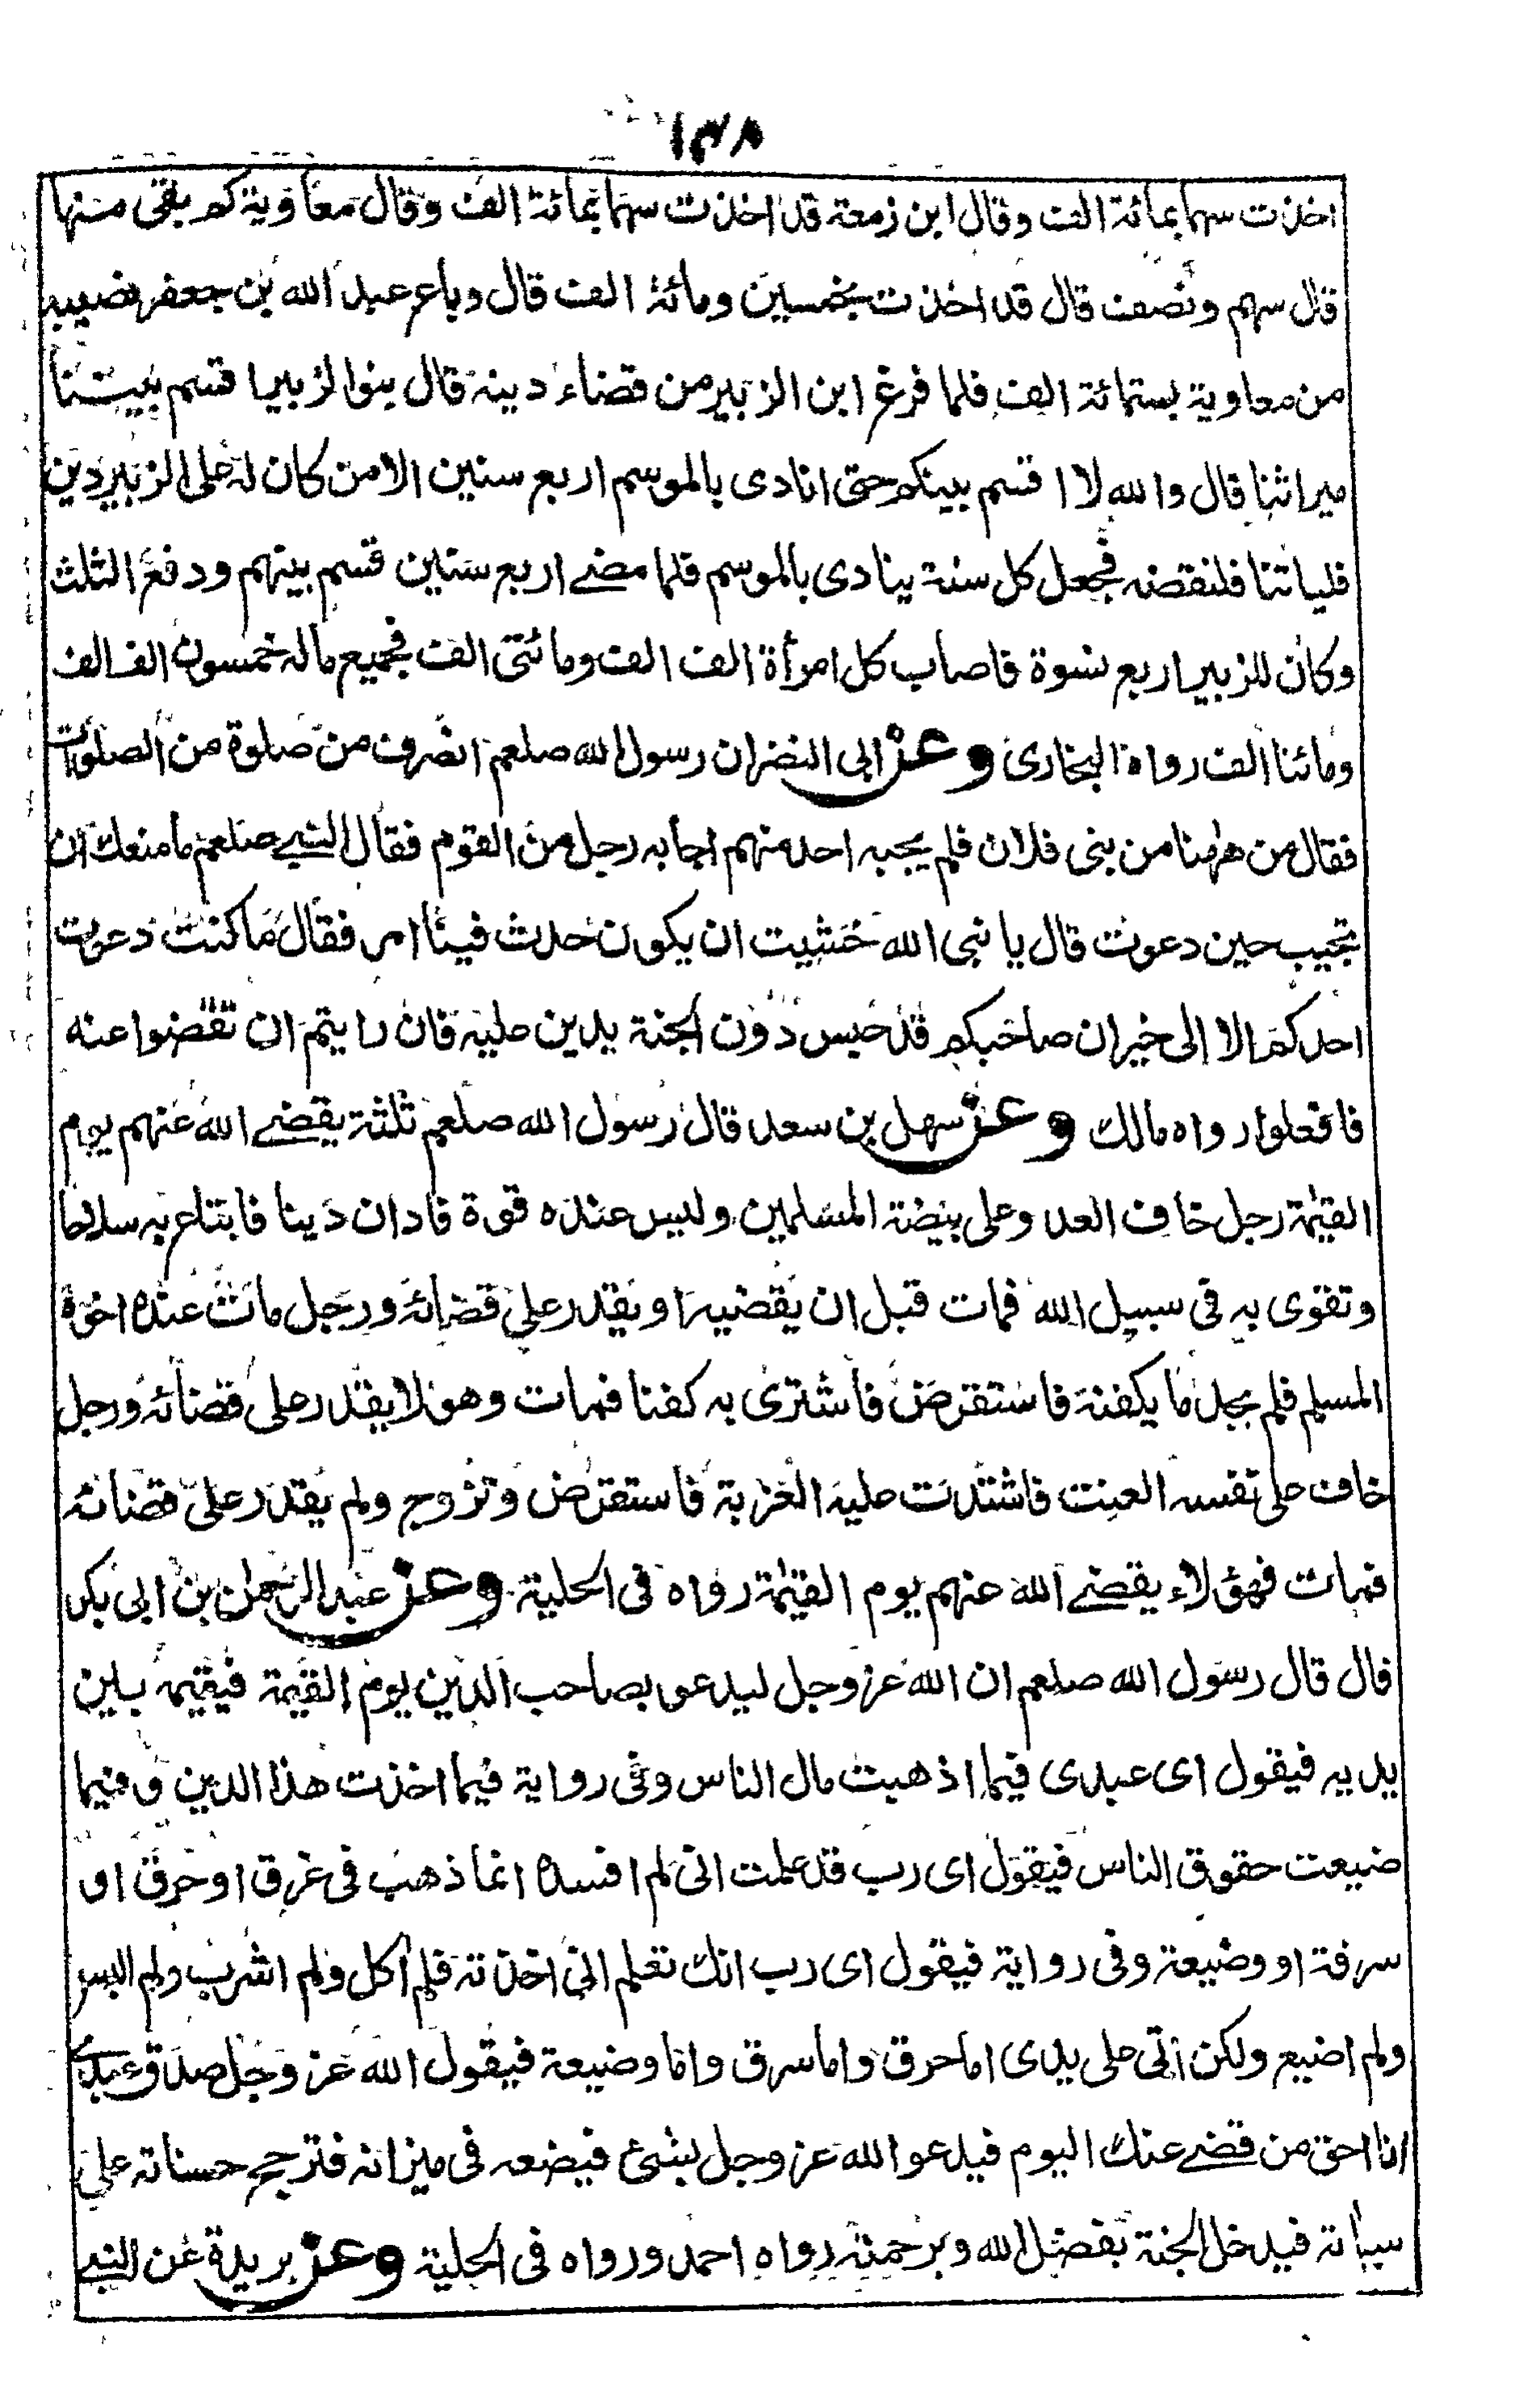 ١٣٨
اخذت سهما بمائة الف وقال ابن زمعة قد اخذت سهما بمائة الف وقال معاوية كم بقى منها
قال سهم ونصف قال قد اخذت بخمسين ومائة الف قال وباع عبد الله بن جعفر نصيبه
من معاوية بستمائة الف فلما فرغ ابن الزبير من قضاء دينه قال بنوا لزبيرا قسم بيننا
ميراثنا قال والله لا اقسم بينكم حتى انادى بالموسم اربع سنين الا من كان له على الزبير دين
فلياتنا فلنقضه فجعل كل سنة ينادى بالموسم فلما مضے اربع سنين قسم بينهم ودفع الثلث
وكان للزبير اربع نسوة فاصاب كل امرأة الف الف ومائتى الف فجميع ماله خمسون الف الف
ومائتا الف رواه البخارى وعن ابى النضر ان رسول الله صلعم انصرف من صلوة من الصلوات
فقال من هٰهنا من بنى فلان فلم يجبه احد منهم اجابه رجل من القوم فقال النبے صلعم ما منعك ان
تجيب حين دعوت قال يا نبى الله خشيت ان يكون حدث فينا امر فقال ما كنت دعوت
احدكم الا الى خير ان صاحبكم قد حبس دون الجنة بدين عليه فان رايتم ان تقضوا عنه
فافعلوا رواه مالك وعن سهل بن سعد قال رسول الله صلعم ثلثة يقضے الله عنهم يوم
القيٰمة رجل خاف العدو على بيضة المسلمين وليس عنده قوة فادان دينا فابتاع به سلاحا
وتقوى به فى سبيل الله فمات قبل ان يقضيه او يقدر على قضائه ورجل مات عنده اخوه
المسلم فلم يجد ما يكفنه فاستقرض فاشترى به كفنا فمات وهو لا يقدر على قضائه ورجل
خاف على نفسه العنت فاشتدت عليه العزبة فاستقرض وتزوج ولم يقدر على قضائه
فمات فهؤلاء يقضے الله عنهم يوم القيٰمة رواه فى الحلية وعن عبد الرحمٰن بن ابى بكر
قال قال رسول الله صلعم ان الله عز وجل ليدعو بصاحب الدين يوم القيٰمة فيقيمه بين
يديه فيقول اى عبدى فيما اذهبت مال الناس وفى رواية فيما اخذت هذا الدين و فيما
ضيعت حقوق الناس فيقول اى رب قد علمت انى لم افسده انما ذهب فى غرق او حرق او
سرقة او وضيعة وفى رواية فيقول اى رب انك تعلم انى اخذته فلم أكل ولم اشرب ولم البس
ولم اضيع ولكن اتى على يدى اما حرق واما سرق واما وضيعة فيقول الله عز وجل صدق عبدى
انا احق من قضے عنك اليوم فيدعوا الله عز وجل بشئ فيضعه فى ميزانه فترجح حسناته على
سياته فيدخل الجنة بفضل الله وبرحمته رواه احمد ورواه فى الحلية وعن بريدة عن النبے